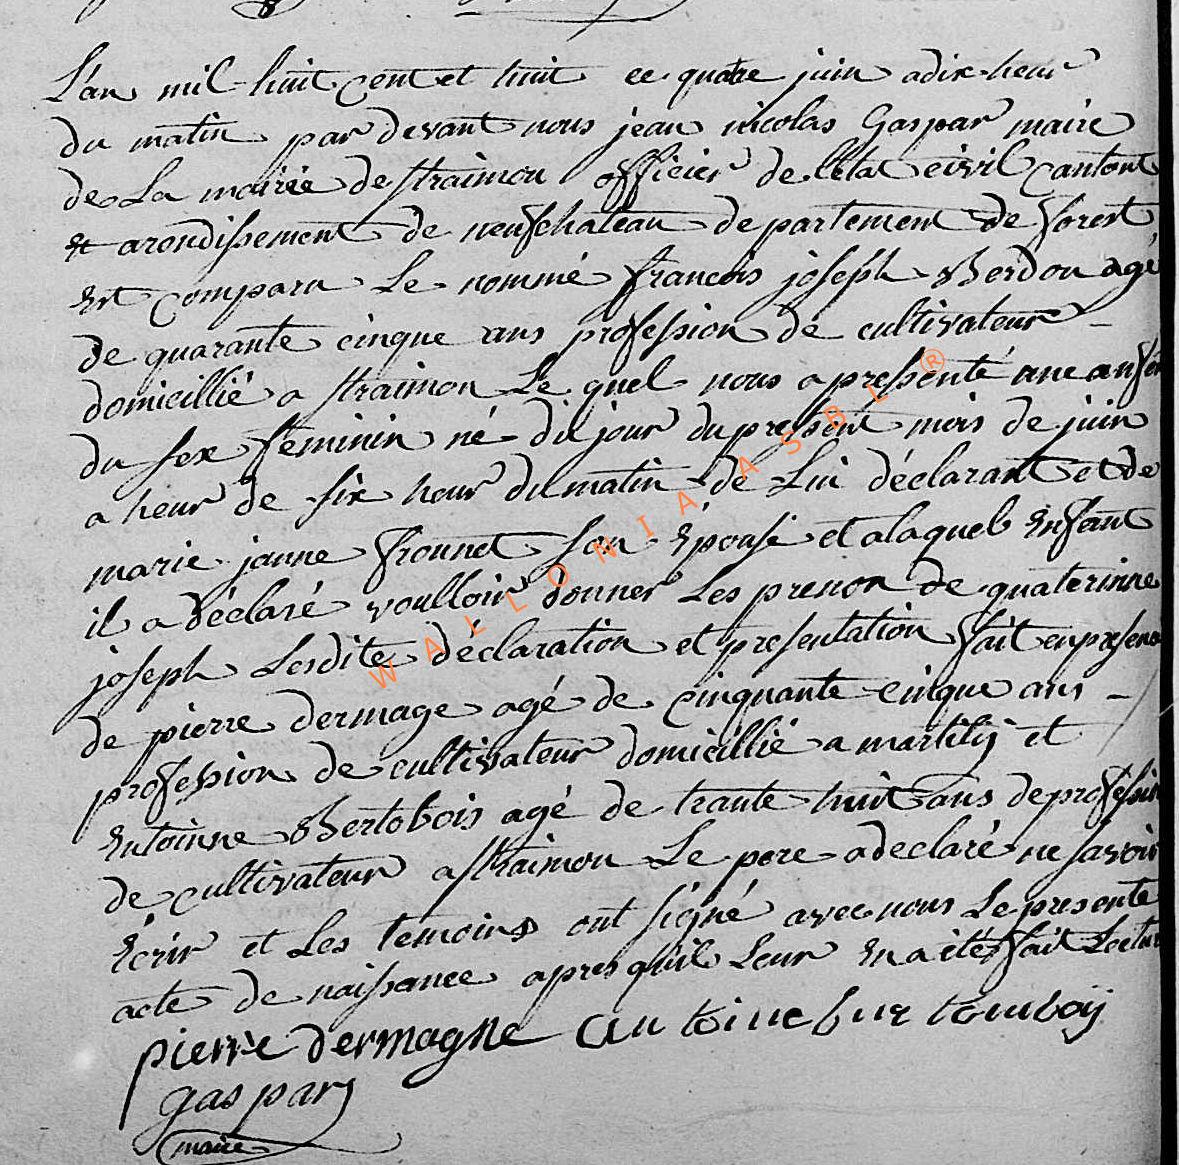 L'an mil huit cent et huit ce quatre juin a dix heur
du matin par devant nous jean nicolas Gaspar maire
de La mairie de straimon officier de l'etat civil canton
et arondissement de neufchateau departement de forest
Est comparu Le nommé francois joseph Berdon agé
de quarante cinque ans profession de cultivateur
domicillié a straimon Le quel nous a pressenté une enfan
du sex feminin né du jour du pressent mois de juin
a heur de six heur du matin de Lui déclarant et de
marie janne frounet son Epouse et alaquel Enfant
il a déclaré voulloir donner Les prenon de quaterinne
joseph Lesdite déclaration et presentation fait en presence
de pierre dermage agé de cinquante cinque ans
profession de cultivateur domicillié a martilij et
Entoinne Bertobois agé de trante huit ans de profession
de cultivateur a straimon Le pere a declaré ne savoir
Ecrir et Les temoins ont signé avec nous Le presente
acte de naissance apres quil Leur En a été fait Lectur
pierre dermagne antoine
gaspar
maire
WALLONIA ASBL ®